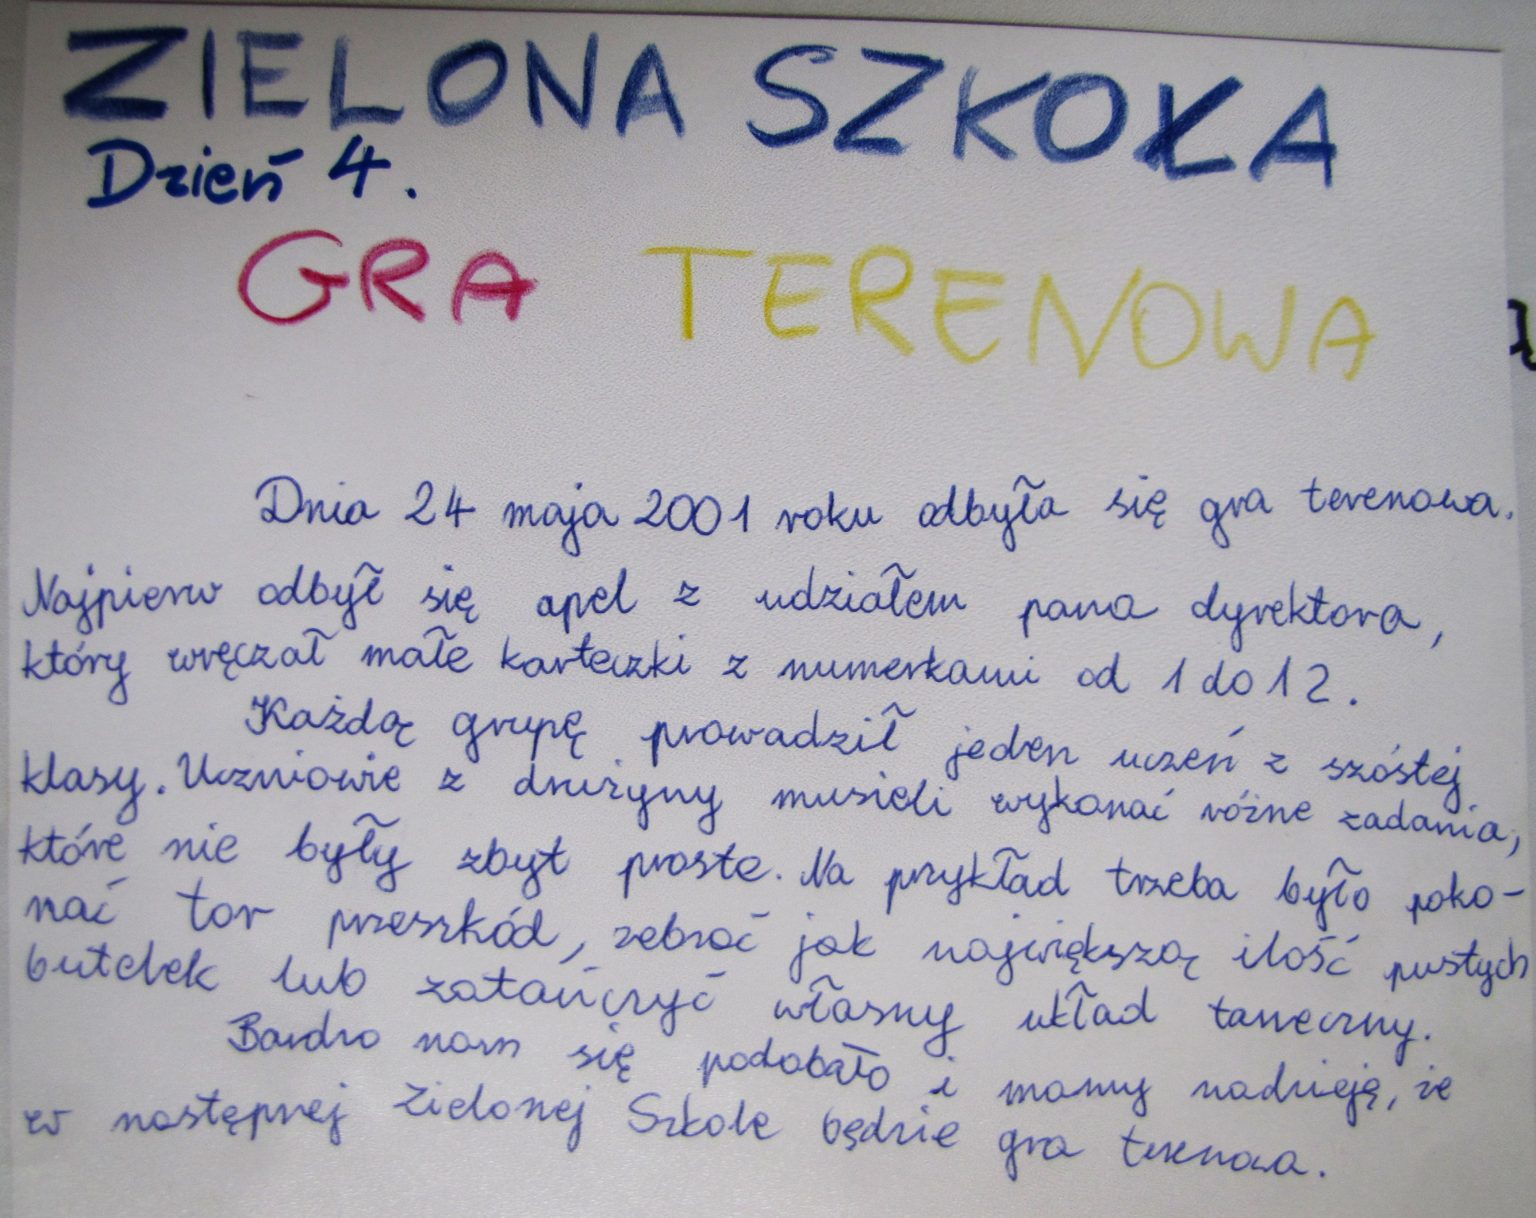 ZIELONA SZKOŁA
Dzień 4.
GRA TERENOWA
Dnia 24 maja 2001 roku odbyła się gra terenowa.
Najpierw odbył się apel z udziałem pana dyrektora,
który wręczał małe karteczki z numerkami od 1 do 12.
Każdą grupę prowadził jeden uczeń z szóstej
klasy. Uczniowie z drużyny musieli wykonać różne zadania,
które nie były zbyt proste. Na przykład trzeba było poko-
nać tor przeszkód, zebrać jak największą ilość pustych
butelek lub zatańczyć własny układ taneczny.
Bardzo nam się podobało i mamy nadzieję, że
w następnej Zielonej Szkole będzie gra terenowa.